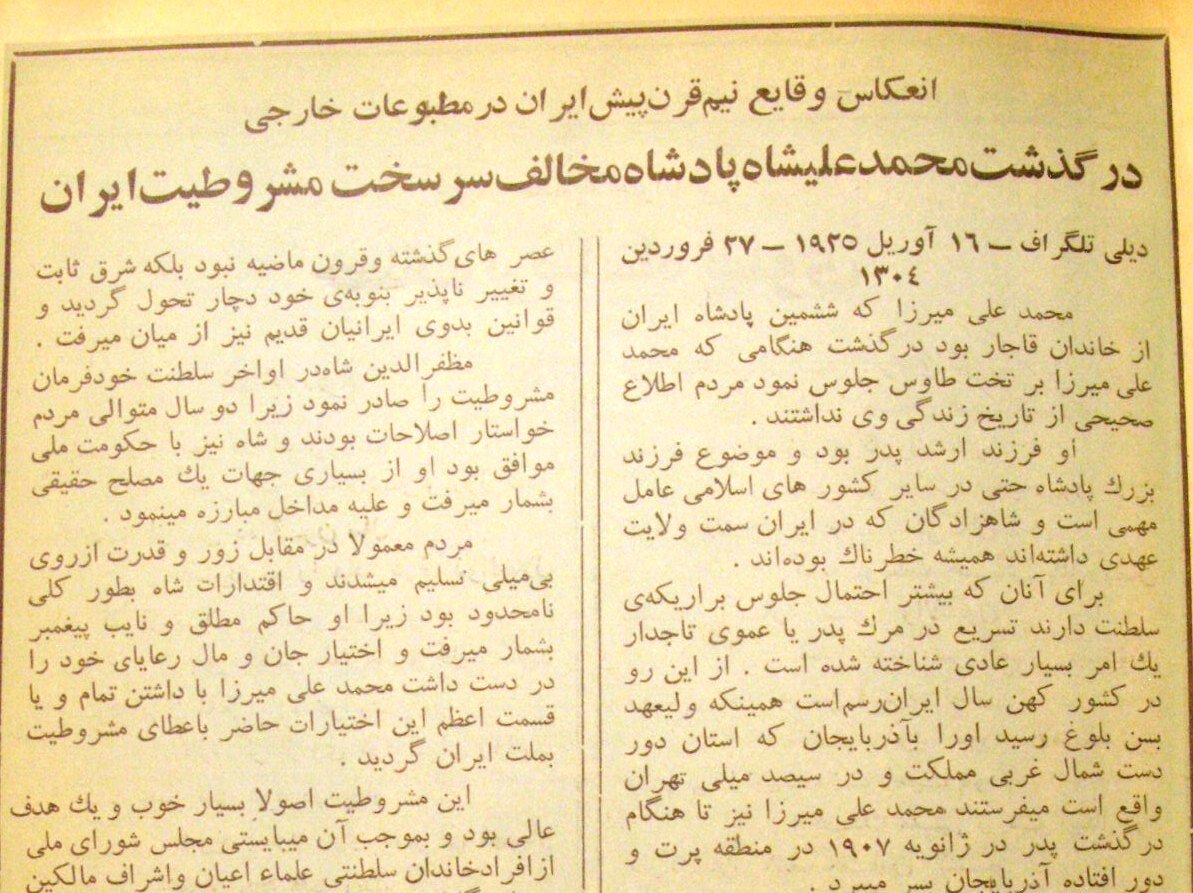 انعکاس وقایع نیم‌قرن‌پیش‌ایران درمطبوعات خارجی
درگذشت‌محمدعلیشاه‌پادشاه‌مخالف‌سرسخت‌مشروطیت‌ایران
دیلی تلگراف – ۱۶ آوریل ۱۹۲۵ – ۲۷ فروردین
۱۳۰٤
محمد علی میرزا که ششمین پادشاه ایران
از خاندان قاجار بود درگذشت هنگامی که محمد
علی میرزا بر تخت طاوس جلوس نمود مردم اطلاع
صحیحی از تاریخ زندگی وی نداشتند .
او فرزند ارشد پدر بود و موضوع فرزند
بزرك پادشاه حتی در سایر کشور های اسلامی عامل
مهمی است و شاهزادگان که در ایران سمت ولایت
عهدی داشته‌اند همیشه خطرناك بوده‌اند .
برای آنان که بیشتر احتمال جلوس براریکه‌ی
سلطنت دارند تسریع در مرك پدر یا عموی تاجدار
یك امر بسیار عادی شناخته شده است . از این رو
در کشور کهن سال ایران‌رسم‌است همینکه ولیعهد
بسن بلوغ رسید اورا بآذربایجان که استان دور
دست شمال غربی مملکت و در سیصد میلی تهران
واقع است میفرستند محمد علی میرزا نیز تا هنگام
درگذشت پدر در ژانویه ۱۹۰۷ در منطقه پرت و
دور افتاده آذربایجان بسر میبرد .
عصر های‌گذشته وقرون ماضیه نبود بلکه شرق ثابت
و تغییر ناپذیر بنوبه‌ی خود دچار تحول گردید و
قوانین بدوی ایرانیان قدیم نیز از میان میرفت .
مظفرالدین شاه‌در اواخر سلطنت خودفرمان
مشروطیت را صادر نمود زیرا دو سال متوالی مردم
خواستار اصلاحات بودند و شاه نیز با حکومت ملی
موافق بود او از بسیاری جهات یك مصلح حقیقی
بشمار میرفت و علیه مداخل مبارزه مینمود .
مردم معمولا در مقابل زور و قدرت ازروی
بی‌میلی تسلیم میشدند و اقتدارات شاه بطور کلی
نامحدود بود زیرا او حاکم مطلق و نایب پیغمبر
بشمار میرفت و اختیار جان و مال رعایای خود را
در دست داشت محمد علی میرزا با داشتن تمام و یا
قسمت اعظم این اختیارات حاضر باعطای مشروطیت
بملت ایران گردید .
این مشروطیت اصولا بسیار خوب و یك هدف
عالی بود و بموجب آن میبایستی مجلس شورای ملی
ازافرادخاندان سلطنتی علماء اعیان واشراف مالکین